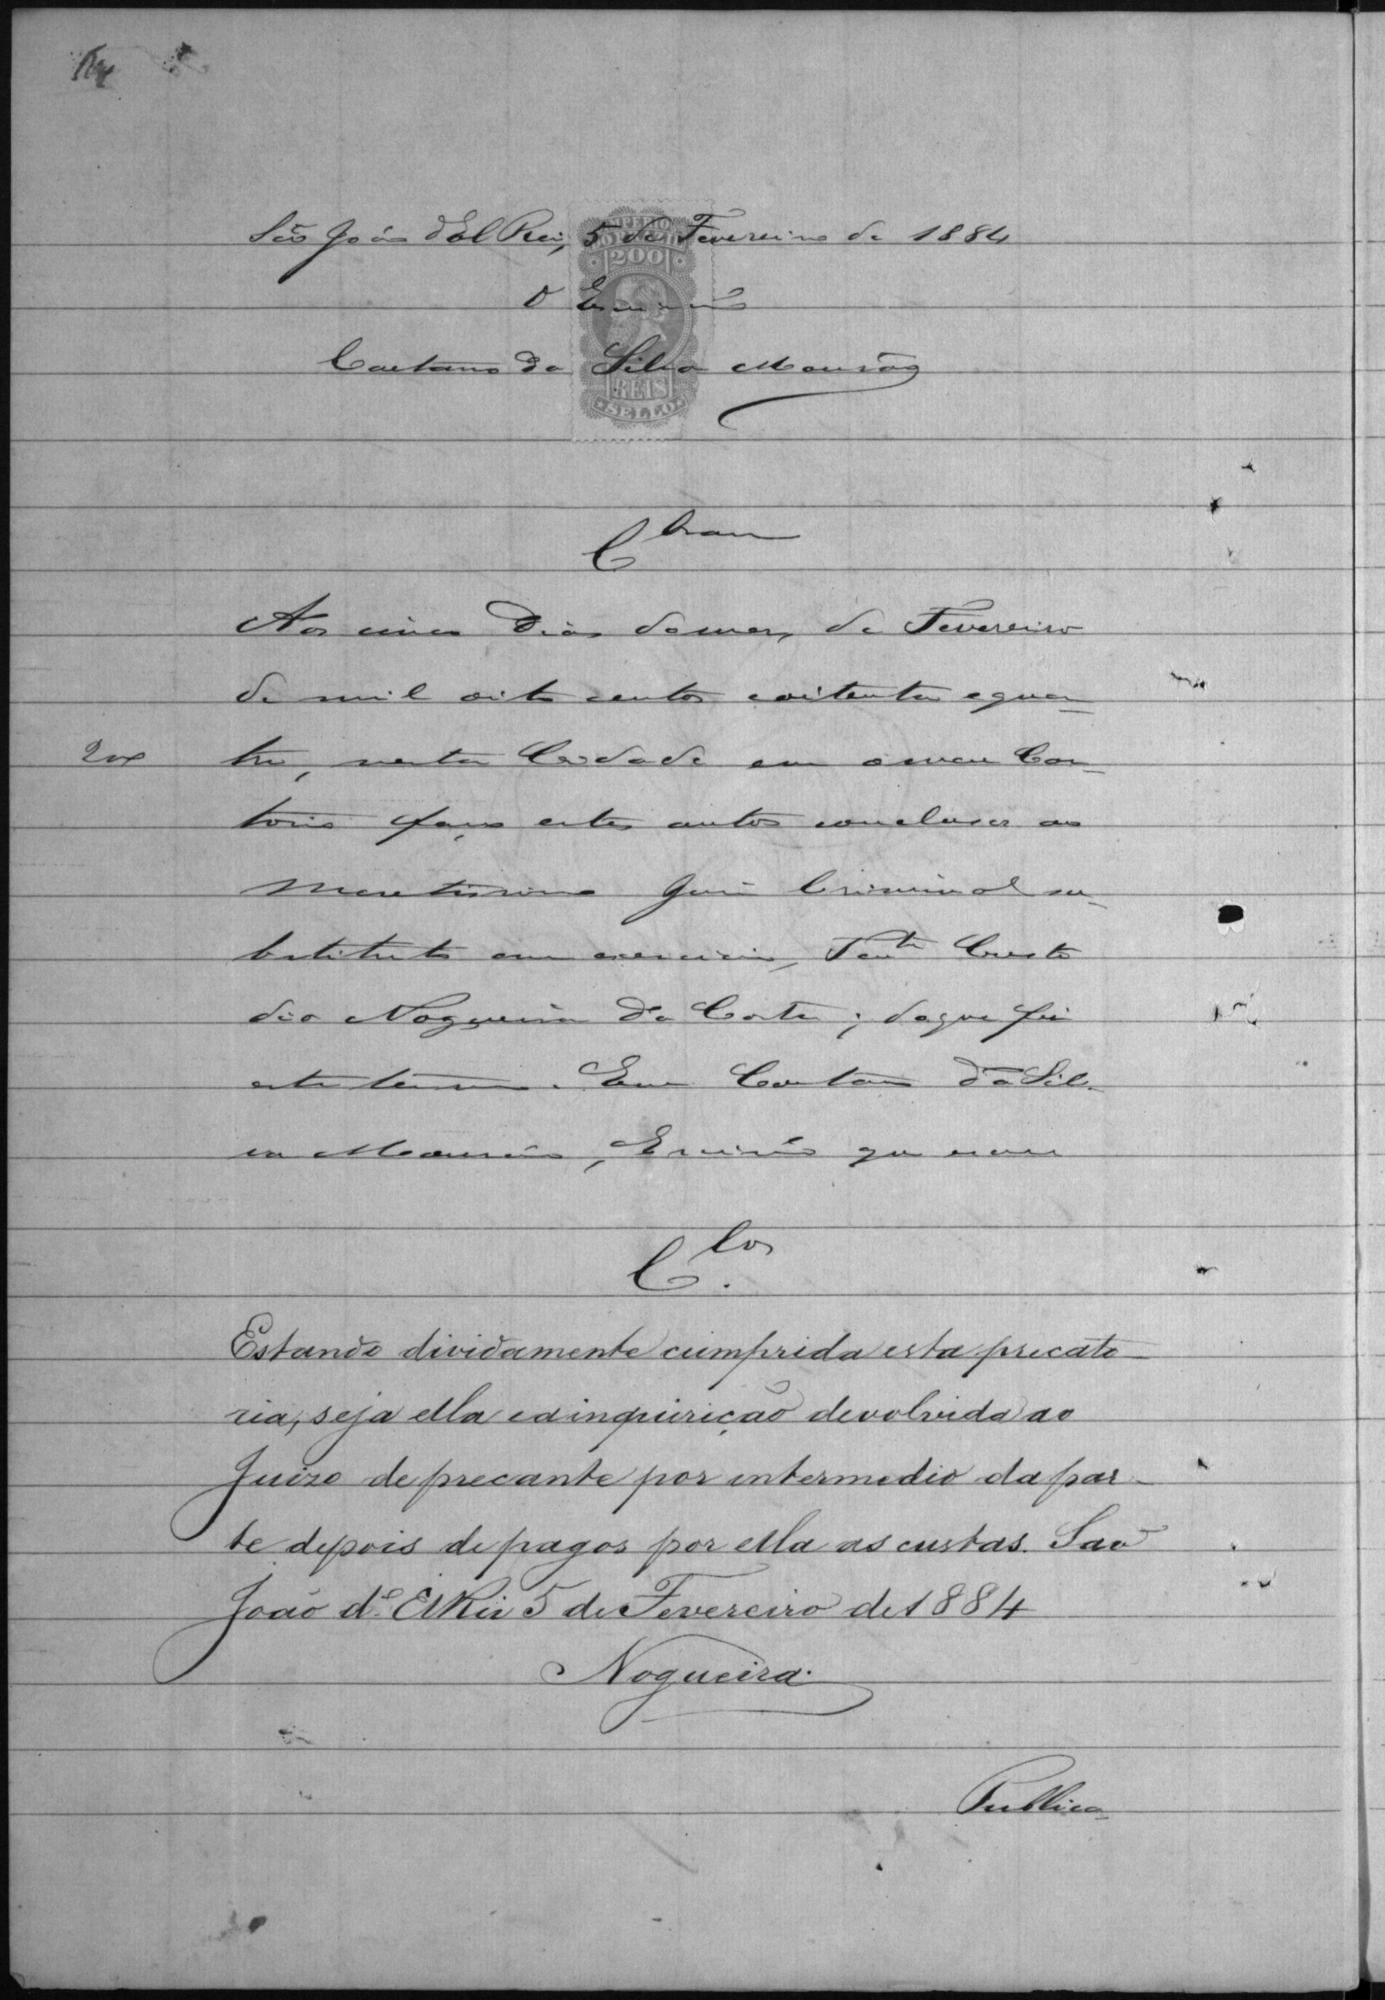 São João d'El Rei, 5 de Fevereiro de 1884
O Escrivão
Caetano da Silva Mourão
IMPERIO
200
REIS
SELLO
Clsam
Aos cinco dias do mez, de Fevereiro
de mil oito centos e oitenta e qua-
tro, nesta Cidade em o meu Car-
200
torio faço estes autos conclusos ao
Meretissimo Juiz Criminal su-
bstituto em exercicio, Tente Custo
dio Nogueira da Costa; do que fiz
este termo. Eu Caetano da Sil-
va Mourão, Escrivão que escrevi
Clos.
Estando dividamente cumprida esta precato-
ria, seja ella e a inquirição devolvida ao
Juizo deprecante por intermedio da par-
te depois de pagos por ella as custas. Sao
João d'El Rei 5 de Fevereiro de 1884
Nogueira.
Publica-